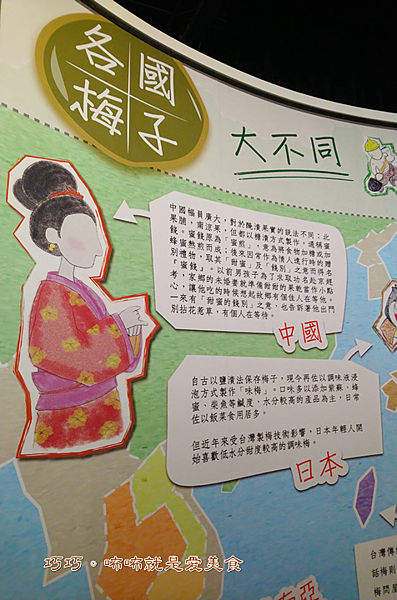 各國
梅子
大不同
中國幅員廣大，對於醃漬果實的說法不同：北
果脯，南涼果，但都以糖漬方式製作，通稱蜜
餞。蜜餞原為「蜜煎」，意為將食物加糖或加
蜂蜜熬煎而成；後來因常作為情人遠行時的贈
別禮物，取其「甜蜜」及「餞別」之意而得名
『蜜餞』。以前男孩為了求取功名赴京趕
考，家鄉的未婚妻就準備甜甜的果乾當作小點
心，讓他吃的時候想起故鄉有個佳人在等他。
一來有「甜蜜的餞別」之意，也告訴著他出門
別拈花惹草，有個佳人在等待。
中國
自古以鹽漬法保存梅子，現今再佐以調味液浸
泡方式製作「味梅」。口味多以添加紫蘇、蜂
蜜、柴魚等鹹度，水分較高的產品為主，日常
佐以飯菜食用居多。
但近年來受台灣製梅技術影響，日本年輕人開
始喜歡低水分甜度較高的調味梅。
日本
台灣傳
話梅則
梅問屋
亞
巧巧。啾啾就是愛美食